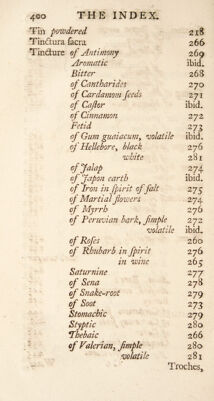 400 THE INDEX.
Tin powdered 218
Tinctura sacra 266
Tincture of Antimony 269
Aromatic ibid.
Bitter 268
of Cantharides 270
of Cardamom seeds 271
of Castor ibid.
of Cinnamon 272
Fetid 273
of Gum guaiacum, volatile ibid.
of Hellebore, black 276
white 281
of Jalap 274
of Japon earth ibid.
of Iron in spirit of salt 275
of Martial flowers 274
of Myrrh 276
of Peruvian bark, simple 272
volatile ibid.
of Roses 260
of Rhubarb in spirit 276
in wine 265
Saturnine 277
of Sena 278
of Snake-root 279
of Soot 273
Stomachic 279
Styptic 280
Thebaic 266
of Valerian, simple 280
volatile 281
Troches,